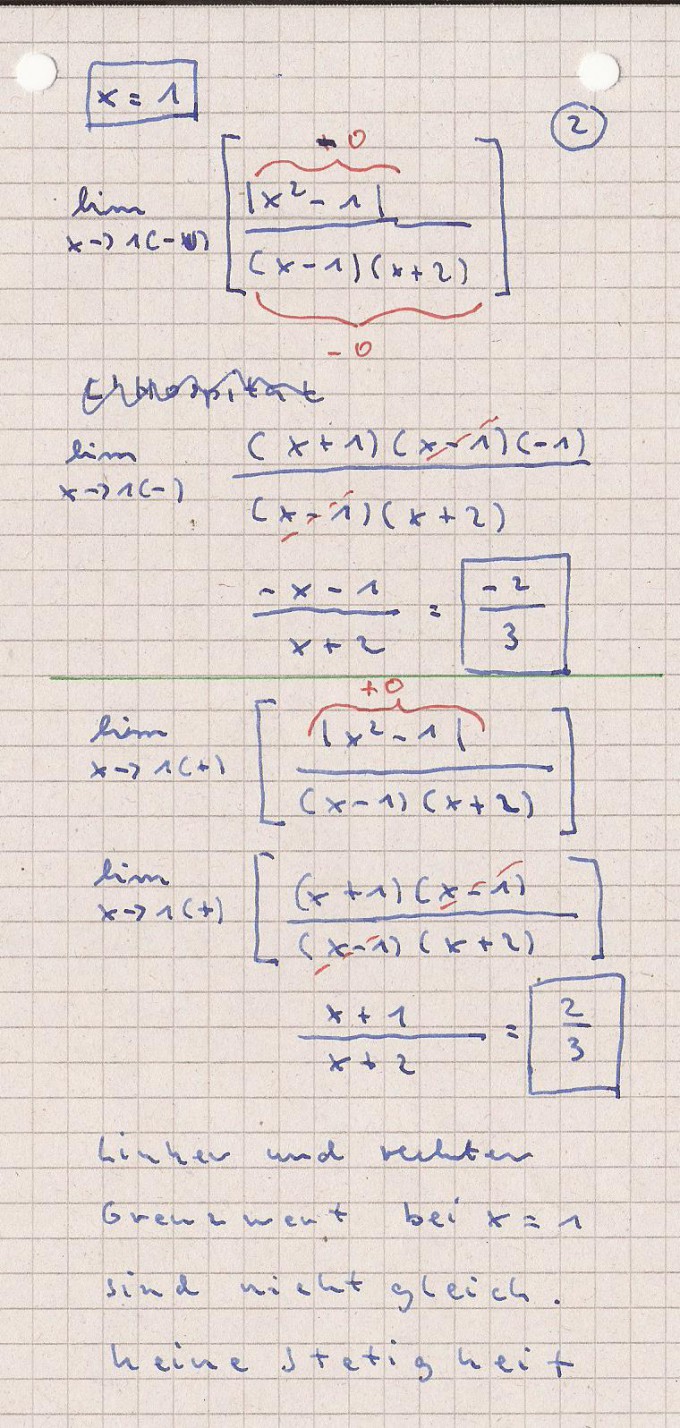 x = 1
2
+ 0
lim x→1(-) [ |x² - 1| / (x-1)(x+2) ]
- 0
lim x→1(-) (x+1)(x-1)(-1) / (x-1)(x+2)
-x-1 / x+2 = -2 / 3
+0
lim x→1(+) [ |x² - 1| / (x-1)(x+2) ]
lim x→1(+) [ (x+1)(x-1) / (x-1)(x+2) ]
x+1 / x+2 = 2 / 3
Linker und rechter
Grenzwert bei x = 1
sind nicht gleich.
keine Stetigkeit